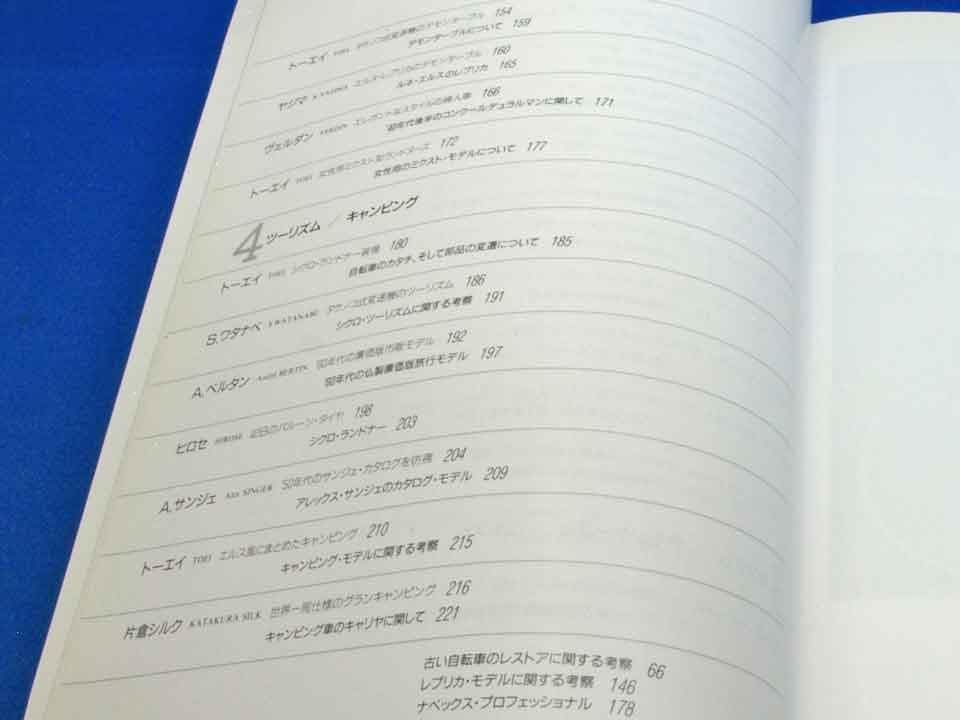 トーエイ TOEI タケノコ式変速機のデモンターブル 154
デモンターブルについて 159
ヤジマ Y.YAJIMA エルス・レプリカのデモンターブル 160
ルネ・エルスのレプリカ 165
ヴェルダン VERDUN エレガントなスタイルの婦人車 166
'40年代後半のコンクールデュラルマンに関して 171
トーエイ TOEI 女性用ミクスト型ランドヌーズ 172
女性用のミクスト・モデルについて 177
4 ツーリズム / キャンピング
トーエイ TOEI シクロ・ランドナー装備 180
自転車のカタチ、そして部品の変遷について 185
S.ワタナベ S.WATANABE タケノコ式変速機のツーリズム 186
シクロ・ツーリズムに関する考察 191
A.ベルタン André BERTIN '60年代の廉価版市販モデル 192
'60年代の仏製廉価版旅行モデル 197
ヒロセ HIROSE 幻のバルーン・タイヤ 198
シクロ・ランドナー 203
A.サンジェ Alex SINGER '50年代のサンジェ・カタログを彷彿 204
アレックス・サンジェのカタログ・モデル 209
トーエイ TOEI エルス風にまとめたキャンピング 210
キャンピング・モデルに関する考察 215
片倉シルク KATAKURA SILK 世界一周仕様のグランキャンピング 216
キャンピング車のキャリヤに関して 221
古い自転車のレストアに関する考察 66
レプリカ・モデルに関する考察 146
ナベックス・プロフェッショナル 178